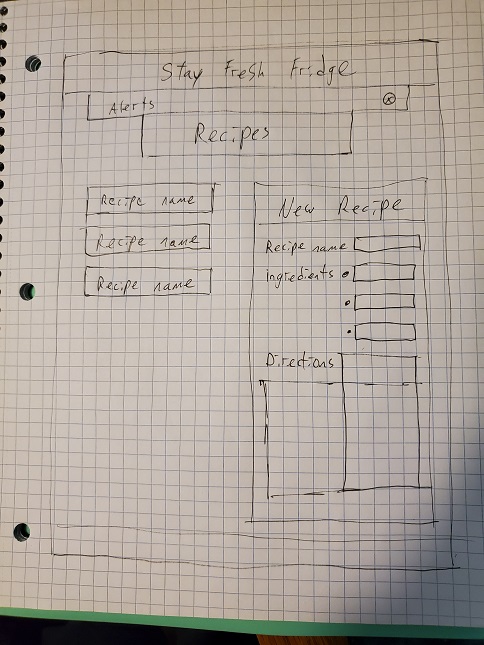 Stay Fresh Fridge
Alerts
Recipes
Recipe name
Recipe name
Recipe name
New Recipe
Recipe name
Ingredients
Directions